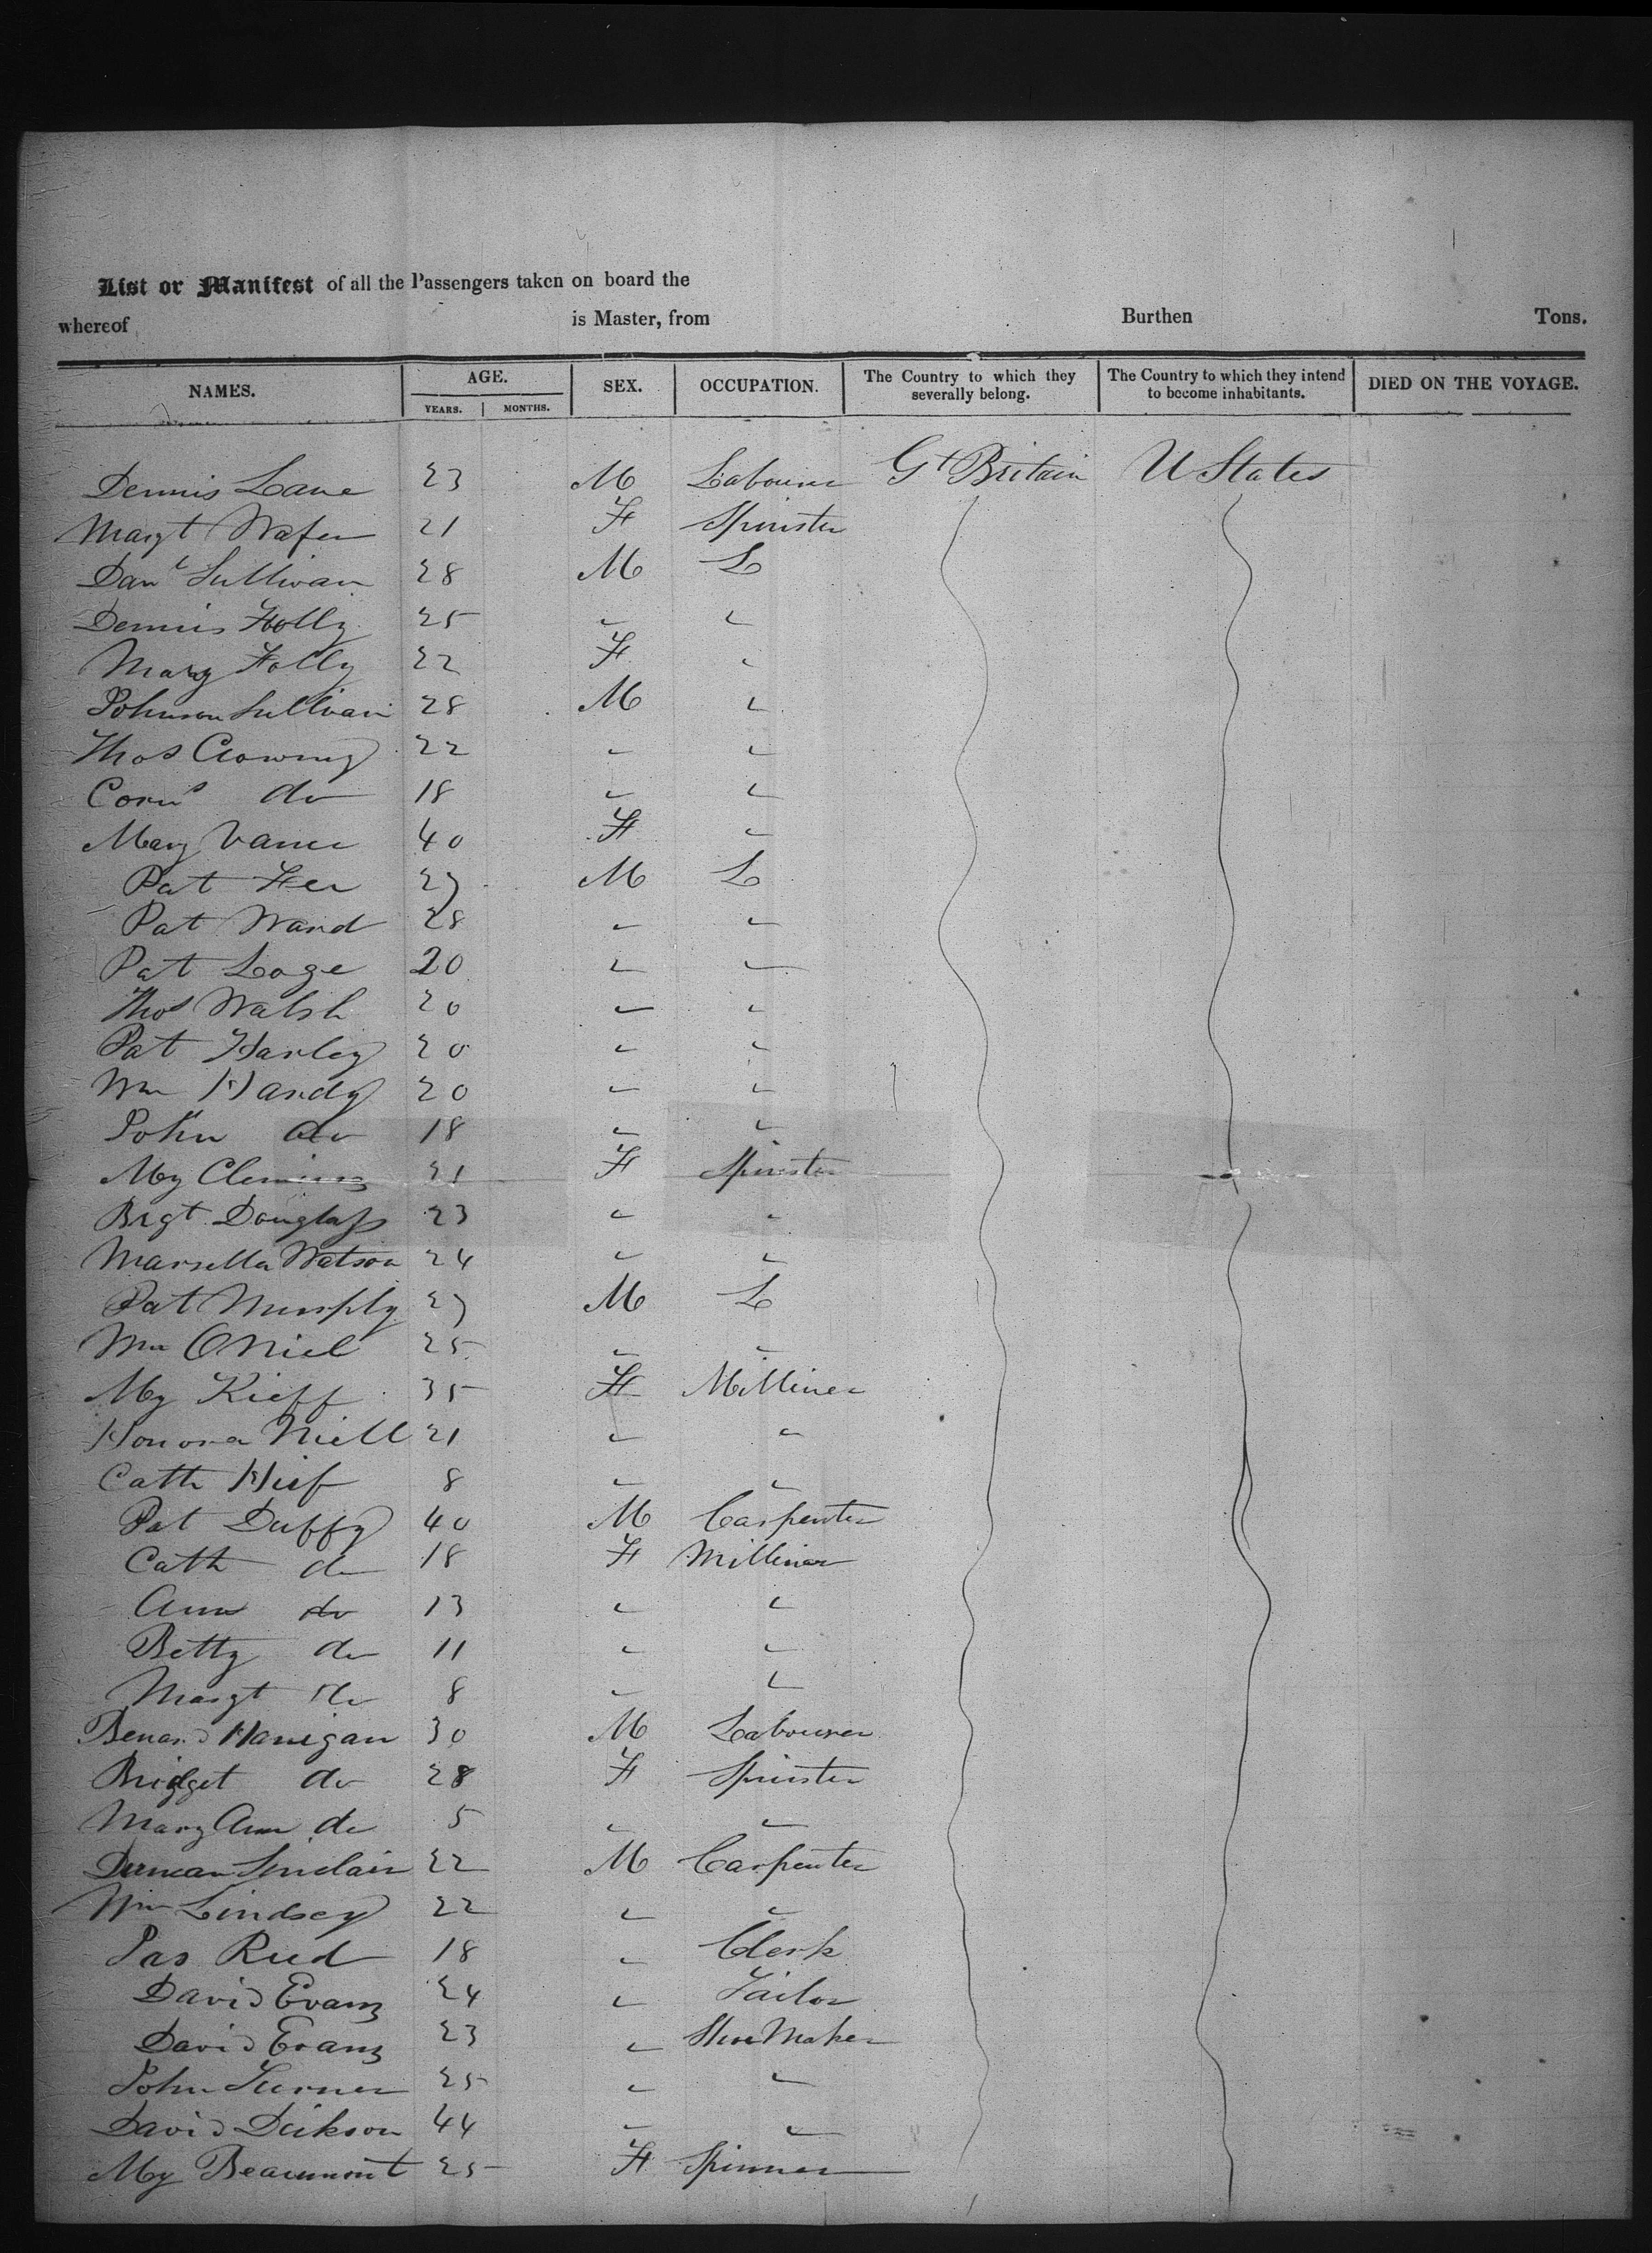 List or Manifest of all the Passengers taken on board the
whereof is Master, from Burthen Tons.
NAMES. AGE. SEX. OCCUPATION. The Country to which they severally belong. The Country to which they intend to become inhabitants. DIED ON THE VOYAGE.
YEARS. MONTHS.
Dennis Lane 23 M Labourer Gt Britain U States
Margt 21 F Spinster
Danl Sullivan 28 M L
Dennis Folly 25 " "
Mary Folly 22 F "
Johnson Sullivan 28 M "
Thos 22 " "
Corns do 18 " "
Mary Vance 40 F "
Pat Fee 27 M L
Pat Ward 28 " "
Pat Loge 20 " "
Thos Walsh 20 " "
Pat Harley 20 " "
Wm Handy 20 " "
John do 18 " "
My 21 F Spinster
Brgt Douglass 23 " "
Marsella Watson 24 " "
Pat Murphy 27 M L
Wm ONiel 25 " "
My Kieff 35 F Milliner
Honora Niell 21 " "
Cath 8 " "
Pat Duffy 40 M Carpenter
Cath do 18 F Milliner
Ann do 13 " "
Betty do 11 " "
Margt do 8 " "
Benard Hanigan 30 M Labourer
Bridget do 28 F Spinster
Mary Ann do 5 " "
Duncan Sinclair 22 M Carpenter
Wm Lindsey 22 " "
Jas Reed 18 " Clerk
David Evans 24 " Tailor
David Evans 23 " Shoe Maker
John Turner 25 " "
David Dickson 44 " "
My Beaumont 25 F Spinner